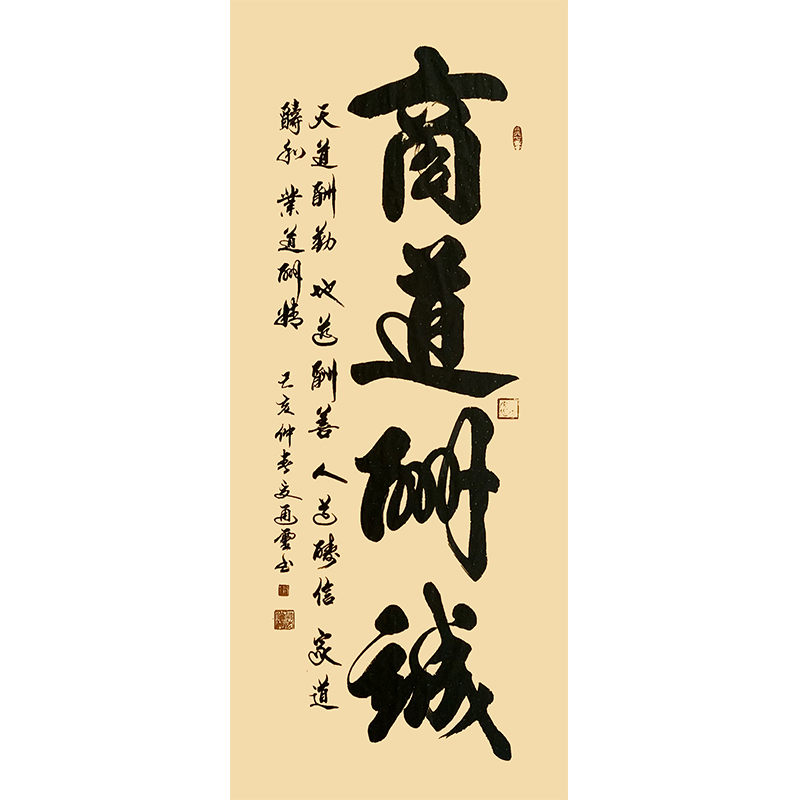 商道酬誠
天道酬勤 地道酬善 人道醻信 家道
醻和 業道酬精 己亥仲春 通雲书